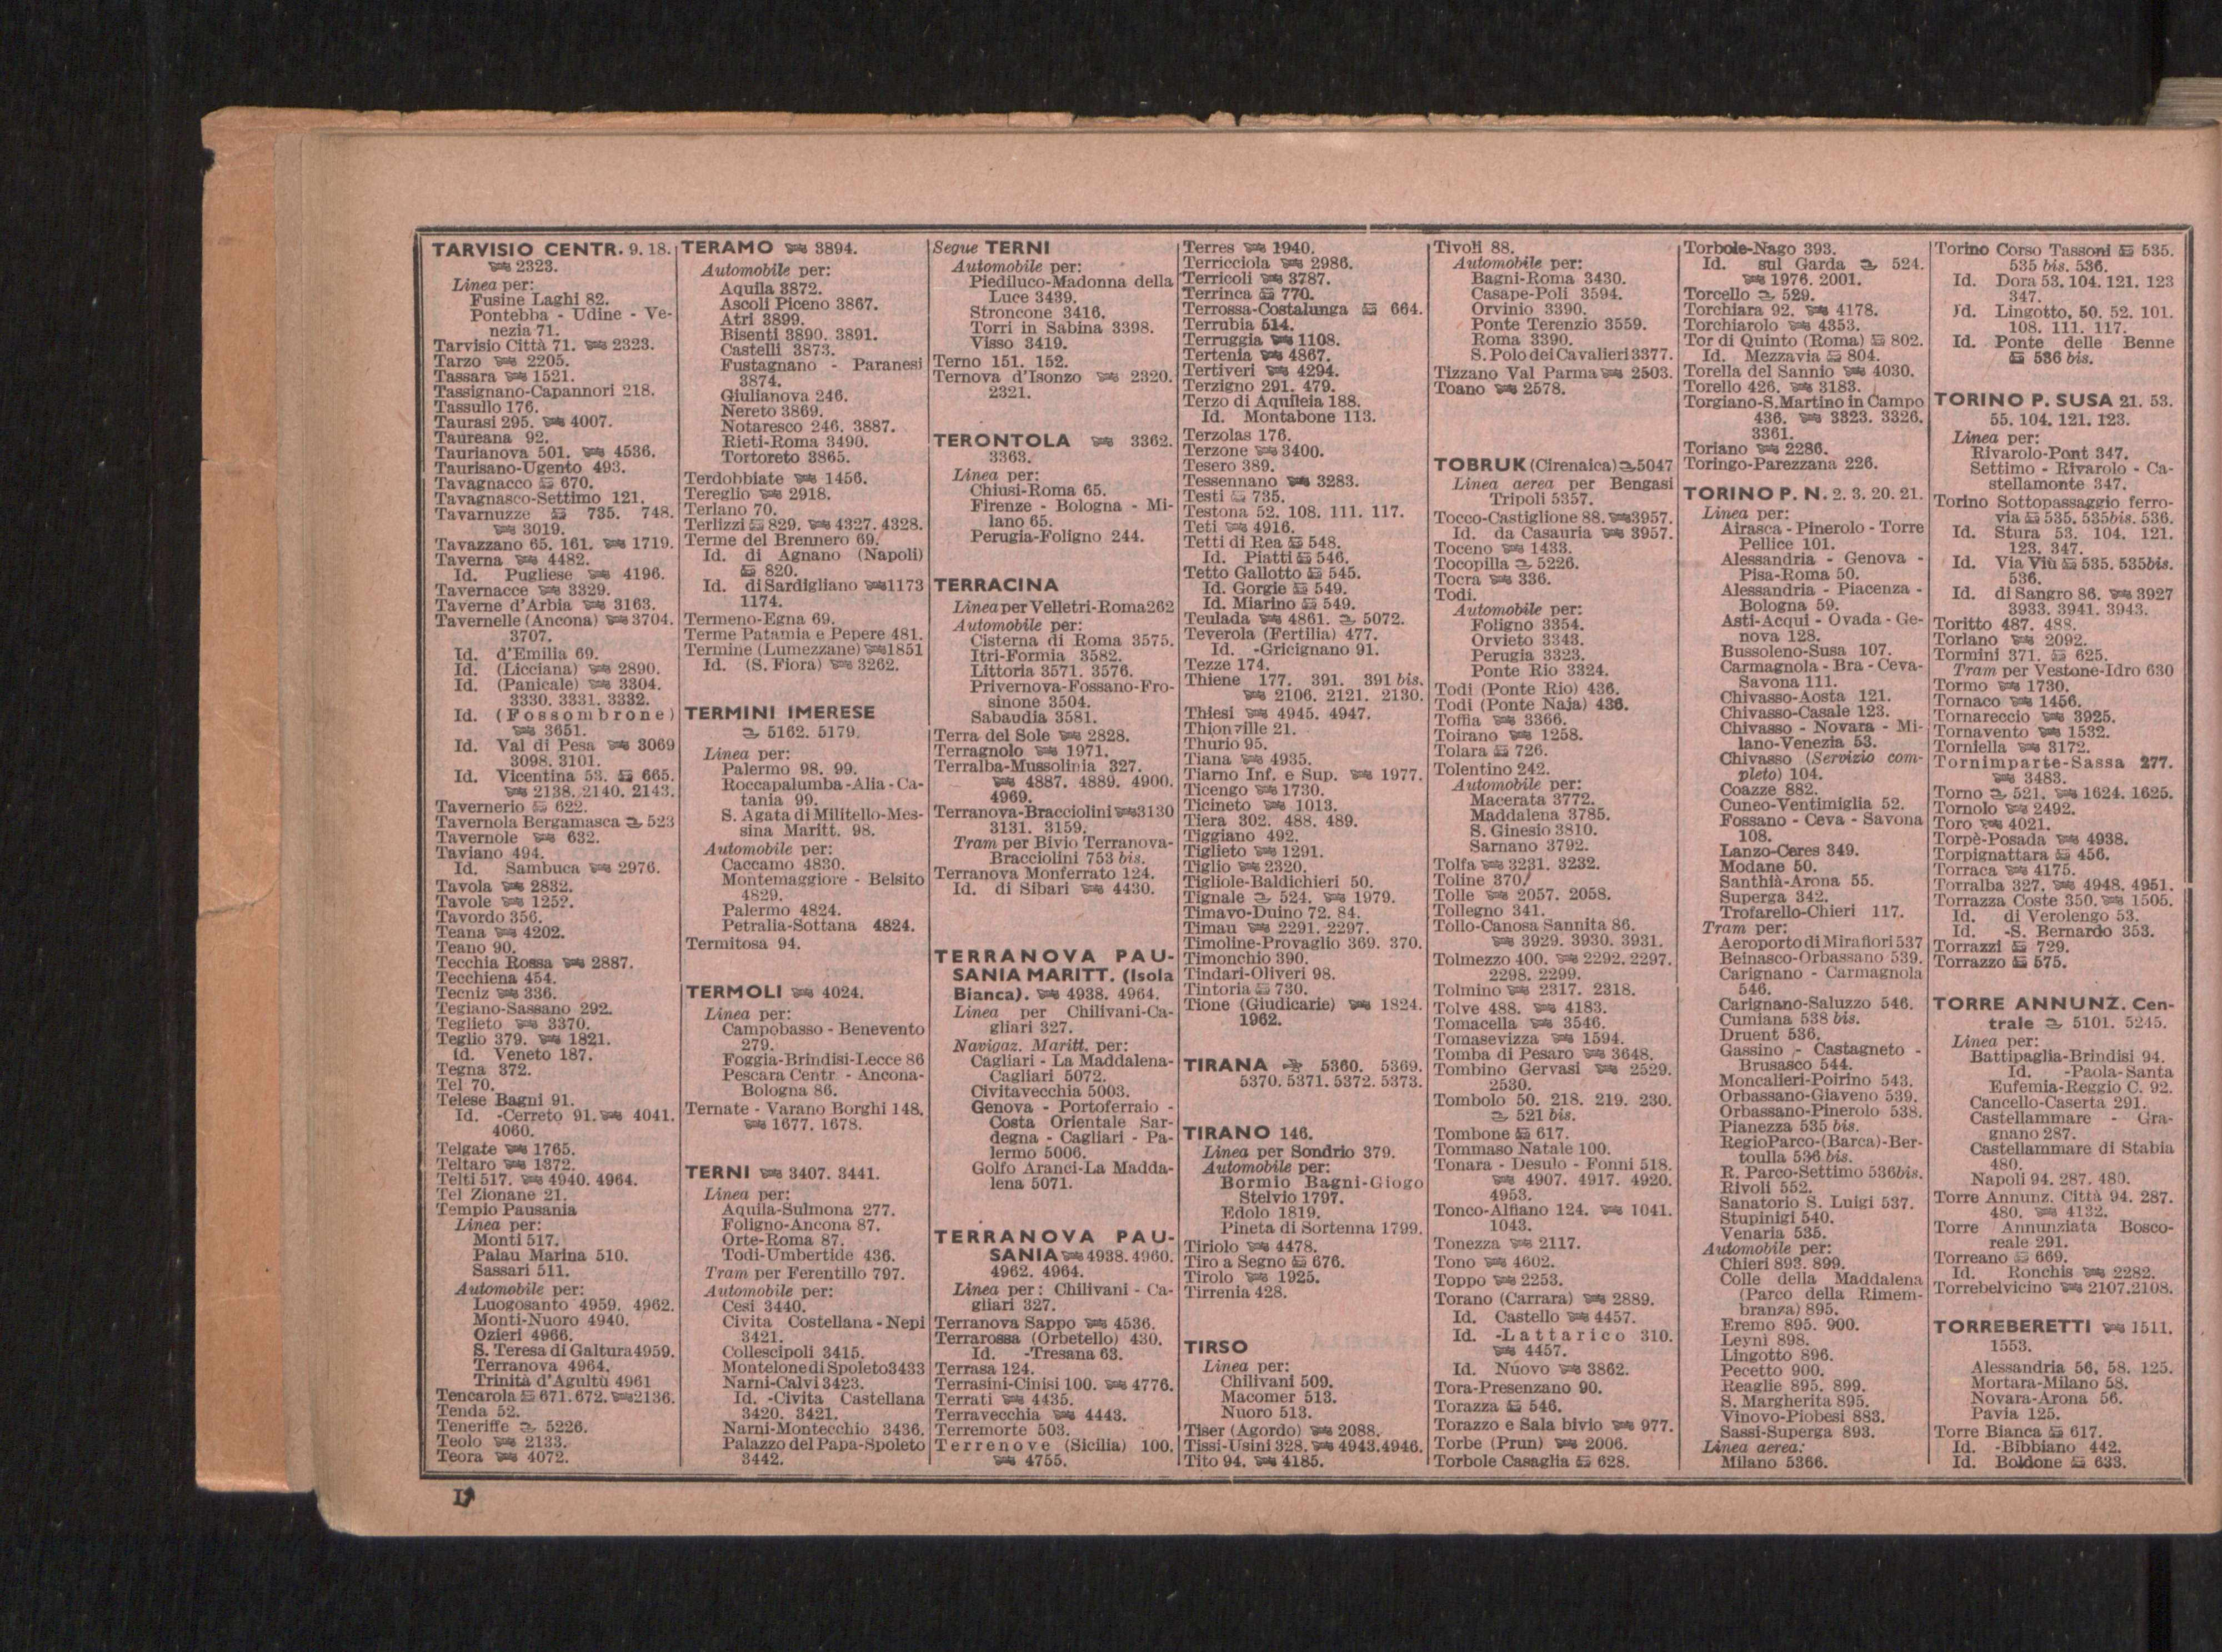 TARVISIO CENTR. 9. 18.
2323.
Linea per:
Fusine Laghi 82.
Pontebba - Udine - Ve-
nezia 71.
Tarvisio Città 71. 2323.
Tarzo 2205.
Tassara 1521.
Tassignano-Capannori 218.
Tassullo 176.
Taurasi 295. 4007.
Taureana 92.
Taurianova 501. 4536.
Taurisano-Ugento 493.
Tavagnacco 670.
Tavagnasco-Settimo 121.
Tavarnuzze 735. 748.
3019.
Tavazzano 65. 161. 1719.
Taverna 4482.
Id. Pugliese 4196.
Tavernacce 3329.
Taverne d'Arbia 3163.
Tavernelle (Ancona) 3704.
3707.
Id. d'Emilia 69.
Id. (Licciana) 2890.
Id. (Panicale) 3304.
3330. 3331. 3332.
Id. (Fossombrone)
3651.
Id. Val di Pesa 3069
3098. 3101.
Id. Vicentina 53. 665.
2138. 2140. 2143.
Tavernerio 622.
Tavernola Bergamasca 523
Tavernole 632.
Taviano 494.
Id. Sambuca 2976.
Tavola 2832.
Tavole 1252.
Tavordo 356.
Teana 4202.
Teano 90.
Tecchia Rossa 2887.
Tecchiena 454.
Tecniz 336.
Tegiano-Sassano 292.
Teglieto 3370.
Teglio 379. 1821.
id. Veneto 187.
Tegna 372.
Tel 70.
Telese Bagni 91.
Id. -Cerreto 91. 4041.
4060.
Telgate 1765.
Teltaro 1372.
Telti 517. 4940. 4964.
Tel Zionane 21.
Tempio Pausania
Linea per:
Monti 517.
Palau Marina 510.
Sassari 511.
Automobile per:
Luogosanto 4959. 4962.
Monti-Nuoro 4940.
Ozieri 4966.
S. Teresa di Galtura 4959.
Terranova 4964.
Trinità d'Agultù 4961
Tencarola 671. 672. 2136.
Tenda 52.
Teneriffe 5226.
Teolo 2133.
Teora 4072.
TERAMO 3894.
Automobile per:
Aquila 3872.
Ascoli Piceno 3867.
Atri 3899.
Bisenti 3890. 3891.
Castelli 3873.
Fustagnano - Paranesi
3874.
Giulianova 246.
Nereto 3869.
Notaresco 246. 3887.
Rieti-Roma 3490.
Tortoreto 3865.
Terdobbiate 1456.
Tereglio 2918.
Terlano 70.
Terlizzi 829. 4327. 4328.
Terme del Brennero 69.
Id. di Agnano (Napoli)
820.
Id. di Sardigliano 1173
1174.
Termeno-Egna 69.
Terme Patamia e Pepere 481.
Termine (Lumezzane) 1851
Id. (S. Fiora) 3262.
TERMINI IMERESE
5162. 5179.
Linea per:
Palermo 98. 99.
Roccapalumba-Alia-Ca-
tania 99.
S. Agata di Militello-Mes-
sina Maritt. 98.
Automobile per:
Caccamo 4830.
Montemaggiore - Belsito
4829.
Palermo 4824.
Petralia-Sottana 4824.
Termitosa 94.
TERMOLI 4024.
Linea per:
Campobasso - Benevento
279.
Foggia-Brindisi-Lecce 86
Pescara Centr. - Ancona-
Bologna 86.
Ternate - Varano Borghi 148.
1677. 1678.
TERNI 3407. 3441.
Linea per:
Aquila-Sulmona 277.
Foligno-Ancona 87.
Orte-Roma 87.
Todi-Umbertide 436.
Tram per Ferentillo 797.
Automobile per:
Cesi 3440.
Civita Costellana - Nepi
3421.
Collescipoli 3415.
Montelone di Spoleto 3433
Narni-Calvi 3423.
Id. -Civita Castellana
3420. 3421.
Narni-Montecchio 3436.
Palazzo del Papa-Spoleto
3442.
Segue TERNI
Automobile per:
Piediluco-Madonna della
Luce 3439.
Stroncone 3416.
Torri in Sabina 3398.
Visso 3419.
Terno 151. 152.
Ternova d'Isonzo 2320.
2321.
TERONTOLA 3362.
3363.
Linea per:
Chiusi-Roma 65.
Firenze - Bologna - Mi-
lano 65.
Perugia-Foligno 244.
TERRACINA
Linea per Velletri-Roma 262
Automobile per:
Cisterna di Roma 3575.
Itri-Formia 3582.
Littoria 3571. 3576.
Privernova-Fossano-Fro-
sinone 3504.
Sabaudia 3581.
Terra del Sole 2828.
Terragnolo 1971.
Terralba-Mussolinia 327.
4887. 4889. 4900.
4969.
Terranova-Bracciolini 3130
3131. 3159.
Tram per Bivio Terranova-
Bracciolini 753 bis.
Terranova Monferrato 124.
Id. di Sibari 4430.
TERRANOVA PAU-
SANIA MARITT. (Isola
Bianca). 4938. 4964.
Linea per Chilivani-Ca-
gliari 327.
Navigaz. Maritt. per:
Cagliari - La Maddalena-
Cagliari 5072.
Civitavecchia 5003.
Genova - Portoferraio -
Costa Orientale Sar-
degna - Cagliari - Pa-
lermo 5006.
Golfo Aranci-La Madda-
lena 5071.
TERRANOVA PAU-
SANIA 4938. 4960.
4962. 4964.
Linea per: Chilivani - Ca-
gliari 327.
Terranova Sappo 4536.
Terrarossa (Orbetello) 430.
Id. -Tresana 63.
Terrasa 124.
Terrasini-Cinisi 100. 4776.
Terrati 4435.
Terravecchia 4443.
Terremorte 503.
Terrenove (Sicilia) 100.
4755.
Terres 1940.
Terricciola 2986.
Terricoli 3787.
Terrinca 770.
Terrossa-Costalunga 664.
Terrubia 514.
Terruggia 1108.
Tertenia 4867.
Tertiveri 4294.
Terzigno 291. 479.
Terzo di Aquileia 188.
Id. Montabone 113.
Terzolas 176.
Terzone 3400.
Tesero 389.
Tessennano 3283.
Testi 735.
Testona 52. 108. 111. 117.
Teti 4916.
Tetti di Rea 548.
Id. Piatti 546.
Tetto Gallotto 545.
Id. Gorgie 549.
Id. Miarino 549.
Teulada 4861. 5072.
Teverola (Fertilia) 477.
Id. -Gricignano 91.
Tezze 174.
Thiene 177. 391. 391 bis.
2106. 2121. 2130.
Thiesi 4945. 4947.
Thionville 21.
Thurio 95.
Tiana 4935.
Tiarno Inf. e Sup. 1977.
Ticengo 1730.
Ticineto 1013.
Tiera 302. 488. 489.
Tiggiano 492.
Tiglieto 1291.
Tiglio 2320.
Tigliole-Baldichieri 50.
Tignale 524. 1979.
Timavo-Duino 72. 84.
Timau 2291. 2297.
Timoline-Provaglio 369. 370.
Timonchio 390.
Tindari-Oliveri 98.
Tintoria 730.
Tione (Giudicarie) 1824.
1962.
TIRANA 5360. 5369.
5370. 5371. 5372. 5373.
TIRANO 146.
Linea per Sondrio 379.
Automobile per:
Bormio Bagni-Giogo
Stelvio 1797.
Edolo 1819.
Pineta di Sortenna 1799.
Tiriolo 4478.
Tiro a Segno 676.
Tirolo 1925.
Tirrenia 428.
TIRSO
Linea per:
Chilivani 509.
Macomer 513.
Nuoro 513.
Tiser (Agordo) 2088.
Tissi-Usini 328. 4943. 4946.
Tito 94. 4185.
Tivoli 88.
Automobile per:
Bagni-Roma 3430.
Casape-Poli 3594.
Orvinio 3390.
Ponte Terenzio 3559.
Roma 3390.
S. Polo dei Cavalieri 3377.
Tizzano Val Parma 2503.
Toano 2578.
TOBRUK (Cirenaica) 5047
Linea aerea per Bengasi
Tripoli 5357.
Tocco-Castiglione 88. 3957.
Id. da Casauria 3957.
Toceno 1433.
Tocopilla 5226.
Tocra 336.
Todi.
Automobile per:
Foligno 3354.
Orvieto 3343.
Perugia 3323.
Ponte Rio 3324.
Todi (Ponte Rio) 436.
Todi (Ponte Naja) 436.
Toffia 3366.
Toirano 1258.
Tolara 726.
Tolentino 242.
Automobile per:
Macerata 3772.
Maddalena 3785.
S. Ginesio 3810.
Sarnano 3792.
Tolfa 3231. 3232.
Toline 370.
Tolle 2057. 2058.
Tollegno 341.
Tollo-Canosa Sannita 86.
3929. 3930. 3931.
Tolmezzo 400. 2292. 2297.
2298. 2299.
Tolmino 2317. 2318.
Tolve 488. 4183.
Tomacella 3546.
Tomasevizza 1594.
Tomba di Pesaro 3648.
Tombino Gervasi 2529.
2530.
Tombolo 50. 218. 219. 230.
521 bis.
Tombone 617.
Tommaso Natale 100.
Tonara - Desulo - Fonni 518.
4907. 4917. 4920.
4953.
Tonco-Alfiano 124. 1041.
1043.
Tonezza 2117.
Tono 4602.
Toppo 2253.
Torano (Carrara) 2889.
Id. Castello 4457.
Id. -Lattarico 310.
4457.
Id. Nuovo 3862.
Tora-Presenzano 90.
Torazza 546.
Torazzo e Sala bivio 977.
Torbe (Prun) 2006.
Torbole Casaglia 628.
Torbole-Nago 393.
Id. sul Garda 524.
1976. 2001.
Torcello 529.
Torchiara 92. 4178.
Torchiarolo 4353.
Tor di Quinto (Roma) 802.
Id. Mezzavia 804.
Torella del Sannio 4030.
Torello 426. 3183.
Torgiano-S. Martino in Campo
436. 3323. 3326.
3361.
Toriano 2286.
Toringo-Parezzana 226.
TORINO P. N. 2. 3. 20. 21.
Linea per:
Airasca - Pinerolo - Torre
Pellice 101.
Alessandria - Genova -
Pisa-Roma 50.
Alessandria - Piacenza -
Bologna 59.
Asti-Acqui - Ovada - Ge-
nova 128.
Bussoleno-Susa 107.
Carmagnola - Bra - Ceva-
Savona 111.
Chivasso-Aosta 121.
Chivasso-Casale 123.
Chivasso - Novara - Mi-
lano-Venezia 53.
Chivasso (Servizio com-
pleto) 104.
Coazze 882.
Cuneo-Ventimiglia 52.
Fossano - Ceva - Savona
108.
Lanzo-Ceres 349.
Modane 50.
Santhià-Arona 55.
Superga 342.
Trofarello-Chieri 117.
Tram per:
Aeroporto di Mirafiori 537
Beinasco-Orbassano 539.
Carignano - Carmagnola
546.
Carignano-Saluzzo 546.
Cumiana 538 bis.
Druent 536.
Gassino - Castagneto -
Brusasco 544.
Moncalieri-Poirino 543.
Orbassano-Giaveno 539.
Orbassano-Pinerolo 538.
Pianezza 535 bis.
Regio Parco-(Barca)-Ber-
toulla 536 bis.
R. Parco-Settimo 536bis.
Rivoli 552.
Sanatorio S. Luigi 537.
Stupinigi 540.
Venaria 535.
Automobile per:
Chieri 893. 899.
Colle della Maddalena
(Parco della Rimem-
branza) 895.
Eremo 895. 900.
Leynì 898.
Lingotto 896.
Pecetto 900.
Reaglie 895. 899.
S. Margherita 895.
Vinovo-Piobesi 883.
Sassi-Superga 893.
Linea aerea:
Milano 5366.
Torino Corso Tassoni 535.
535 bis. 536.
Id. Dora 53. 104. 121. 123
347.
Id. Lingotto. 50. 52. 101.
108. 111. 117.
Id. Ponte delle Benne
536 bis.
TORINO P. SUSA 21. 53.
55. 104. 121. 123.
Linea per:
Rivarolo-Pont 347.
Settimo - Rivarolo - Ca-
stellamonte 347.
Torino Sottopassaggio ferro-
via 535. 535bis. 536.
Id. Stura 53. 104. 121.
123. 347.
Id. Via Viù 535. 535bis.
536.
Id. di Sangro 86. 3927
3933. 3941. 3943.
Toritto 487. 488.
Torlano 2092.
Tormini 371. 625.
Tram per Vestone-Idro 630
Tormo 1730.
Tornaco 1456.
Tornareccio 3925.
Tornavento 1532.
Torniella 3172.
Tornimparte-Sassa 277.
3483.
Torno 521. 1624. 1625.
Tornolo 2492.
Toro 4021.
Torpè-Posada 4938.
Torpignattara 456.
Torraca 4175.
Torralba 327. 4948. 4951.
Torrazza Coste 350. 1505.
Id. di Verolengo 53.
Id. -S. Bernardo 353.
Torrazzi 729.
Torrazzo 575.
TORRE ANNUNZ. Cen-
trale 5101. 5245.
Linea per:
Battipaglia-Brindisi 94.
Id. -Paola-Santa
Eufemia-Reggio C. 92.
Cancello-Caserta 291.
Castellammare - Gra-
gnano 287.
Castellammare di Stabia
480.
Napoli 94. 287. 480.
Torre Annunz. Città 94. 287.
480. 4132.
Torre Annunziata Bosco-
reale 291.
Torreano 669.
Id. Ronchis 2282.
Torrebelvicino 2107. 2108.
TORREBERETTI 1511.
1553.
Alessandria 56. 58. 125.
Mortara-Milano 58.
Novara-Arona 56.
Pavia 125.
Torre Bianca 617.
Id. -Bibbiano 442.
Id. Boldone 633.